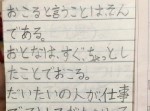 おこると言うことは、そん
である。
おとなは、すぐ、ちょっとし
たことでおこる。
だいたいの人が、仕事